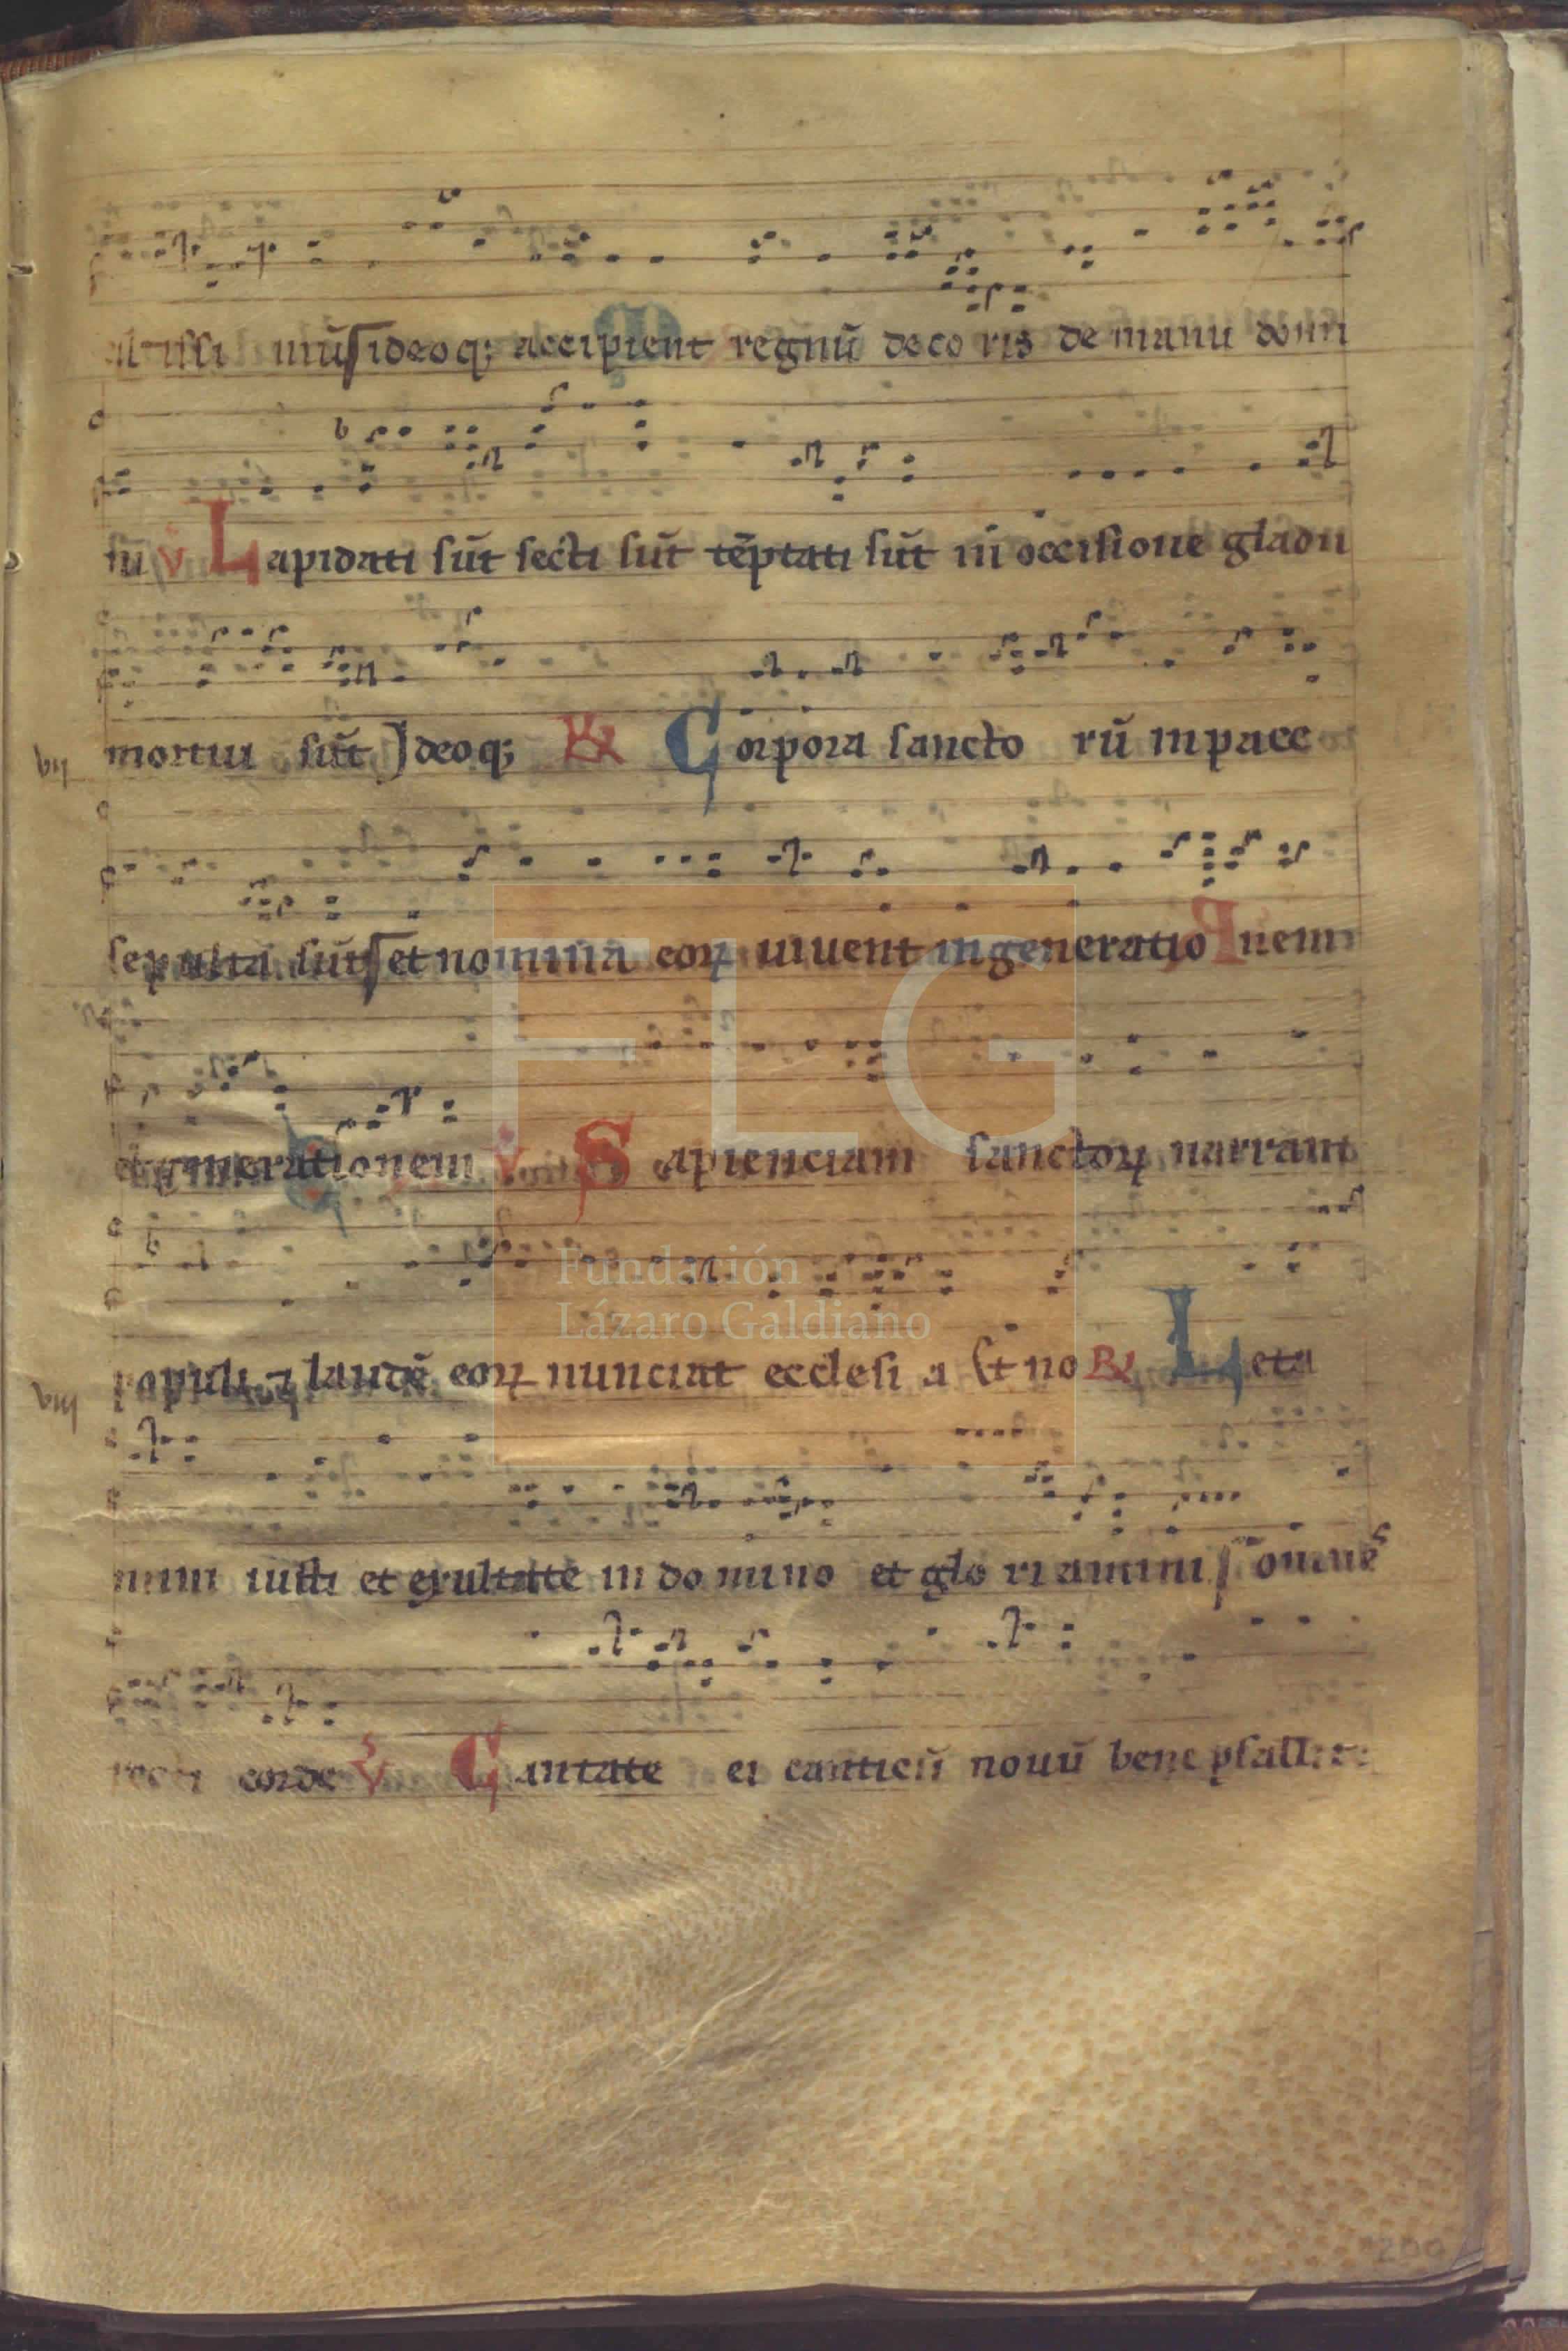 al tissi mus ideoq; accipient regnū deco ris de manu domi
ni v Lapidati sūt secti sūt tēptati sūt in occisione gladii
mortui sūt Ideoq; R Corpora sancto rū in pace
viii
sepulta sūt et nomina eoꝝ vivent in generatio nem
et generationem v Sapienciam sanctoꝝ narrant
populi ⁊ laudē eoꝝ nunciat ecclesi a Et no R Leta
viii
mini iusti et exultate in do mino et glo ri amini omnes
recti corde V Cantate ei canticū novū bene psallite
FLG
Fundación
Lázaro Galdiano
200